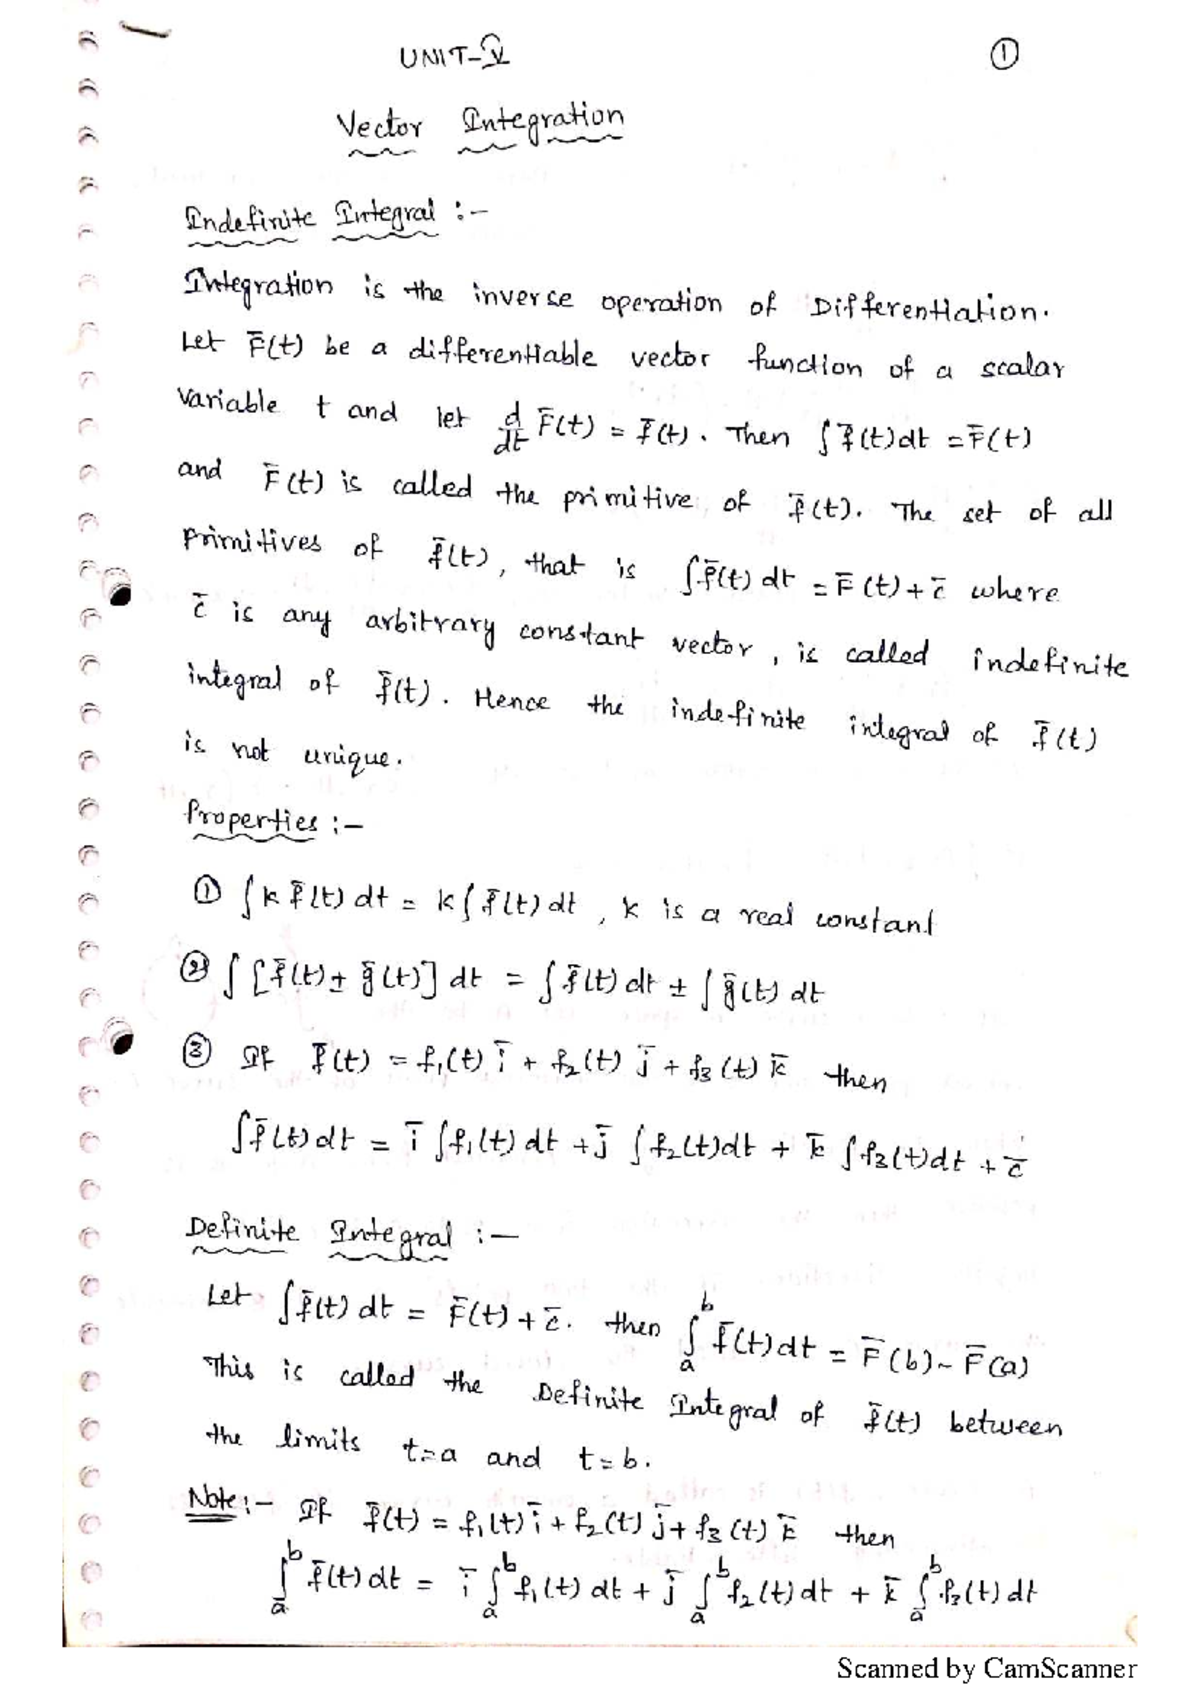 UNIT-V
①
Vector Integration
Indefinite Integral :-
Integration is the inverse operation of Differentiation.
Let F̄(t) be a differentiable vector function of a scalar
variable t and let d/dt F̄(t) = f̄(t). Then ∫f̄(t)dt = F̄(t)
and F̄(t) is called the primitive of f̄(t). The set of all
primitives of f̄(t), that is ∫f̄(t) dt = F̄(t) + c̄ where
c̄ is any arbitrary constant vector, is called indefinite
integral of f̄(t). Hence the indefinite integral of f̄(t)
is not unique.
Properties :-
① ∫k f̄(t) dt = k∫f̄(t) dt, k is a real constant
② ∫[f̄(t) ± ḡ(t)] dt = ∫f̄(t) dt ± ∫ḡ(t) dt
③ If f̄(t) = f₁(t) ī + f₂(t) j̄ + f₃(t) k̄ then
∫f̄(t) dt = ī ∫f₁(t) dt + j̄ ∫f₂(t)dt + k̄ ∫f₃(t)dt + c̄
Definite Integral :-
Let ∫f̄(t) dt = F̄(t) + c̄. then ∫ₐᵇ f̄(t)dt = F̄(b) - F̄(a)
This is called the Definite Integral of f̄(t) between
the limits t=a and t=b.
Note:- If f̄(t) = f₁(t) ī + f₂(t) j̄ + f₃(t) k̄ then
∫ₐᵇ f̄(t) dt = ī ∫ₐᵇ f₁(t) dt + j̄ ∫ₐᵇ f₂(t) dt + k̄ ∫ₐᵇ f₃(t) dt
Scanned by CamScanner